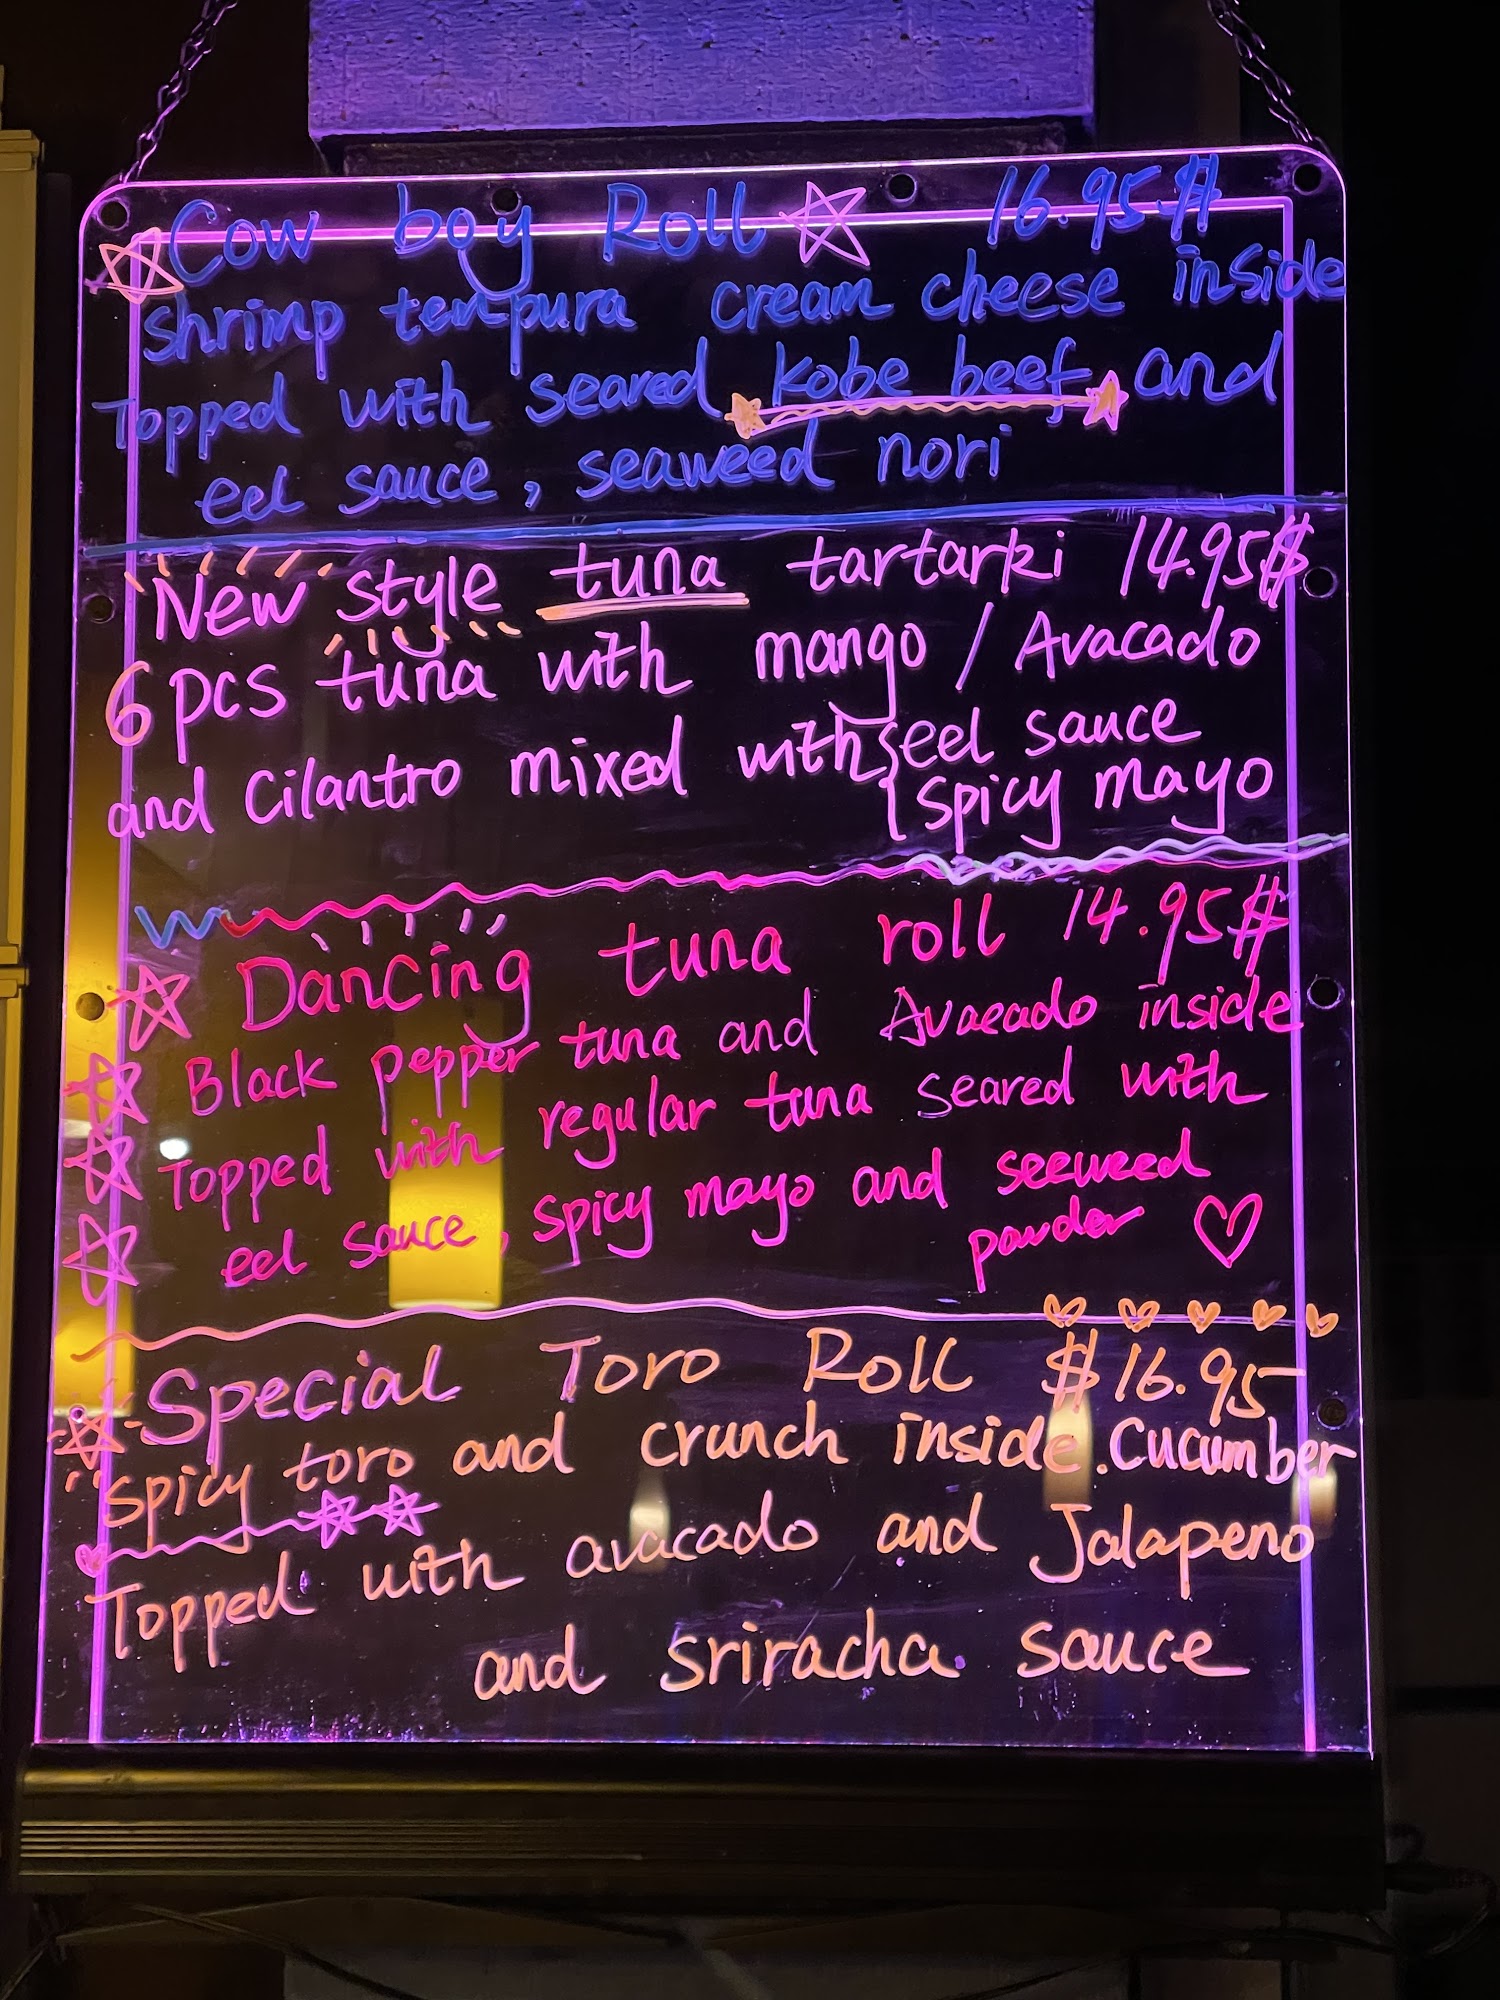 Cow boy Roll 16.95$
shrimp tempura cream cheese inside
Topped with seared kobe beef and
eel sauce, seaweed nori
New style tuna tartarki 14.95$
6 pcs tuna with mango / Avacado
and Cilantro mixed with { eel sauce
spicy mayo
Dancing tuna roll 14.95$
Black pepper tuna and Avacado inside
Topped with regular tuna seared with
eel sauce, spicy mayo and seeweed
powder
Special Toro Roll $16.95
spicy toro and crunch inside. Cucumber
Topped with avacado and Jalapeno
and sriracha sauce